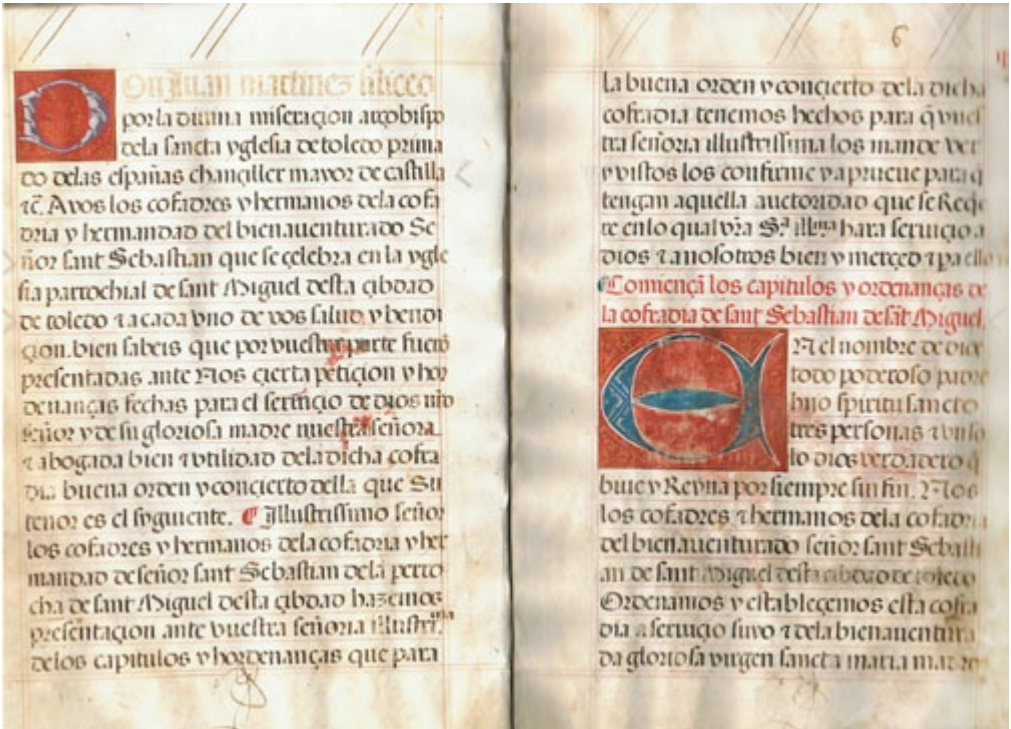 Don Juan martines siliceo
por la diuina miseraçion arçobispo
dela sancta yglesia de toledo prima
do delas españas chançiller mayor de castilla
⁊c̃. A vos los cofadres y hermanos dela cofa
dria y hermandad del bienauenturado Se
ñor sant Sebastian que se çelebra en la ygle
sia parrochial de sant Miguel desta çibdad
de toledo ⁊ a cada vno de vos salud y bendi
çion. bien sabeis que por vuestra parte fuerõ
presentadas ante Nos çierta petiçion y hor
denanças fechas para el seruiçio de dios nr̃o
señor y de su gloriosa madre nuestra señora
⁊ abogada bien ⁊ vtilidad dela dicha cofra
dia buena orden y conçierto della que Su
tenor es el syguiente. ¶ Jllustrissimo señor
los cofadres y hermanos dela cofadria y her
mandad de señor sant Sebastian dela perro
cha de sant Miguel desta çibdad hazemos
presentaçion ante vuestra señoria illustri.ma
delos capitulos y hordenanças que para
6
la buena orden y conçierto dela dicha
cofradia tenemos hechos para q̃ vues
tra señoria illustrissima los mande ver
y vistos los confirme y aprueue para q̃
tengan aquella auctoridad que se Requie
re en lo qual vr̃a S.ª illma hara seruiçio a
dios ⁊ a nosotros bien y merçed ⁊ pa ello
¶ Comiençã los capitulos y ordenanças de
la cofradia de sant Sebastian de sãt Miguel.
EN el nombre de dios
todo poderoso padre
hijo spiritu sancto
tres personas ⁊ vn so
lo dios verdadero q̃
biue y Reyna por siempre sin fin. Nos
los cofadres ⁊ hermanos dela cofadria
del bienauenturado señor sant Sebasti
an de sant Miguel desta çibdad de toledo
Ordenamos y estableçemos esta cofra
dia a seruiçio suyo ⁊ dela bienauentura
da gloriosa virgen sancta maria madre